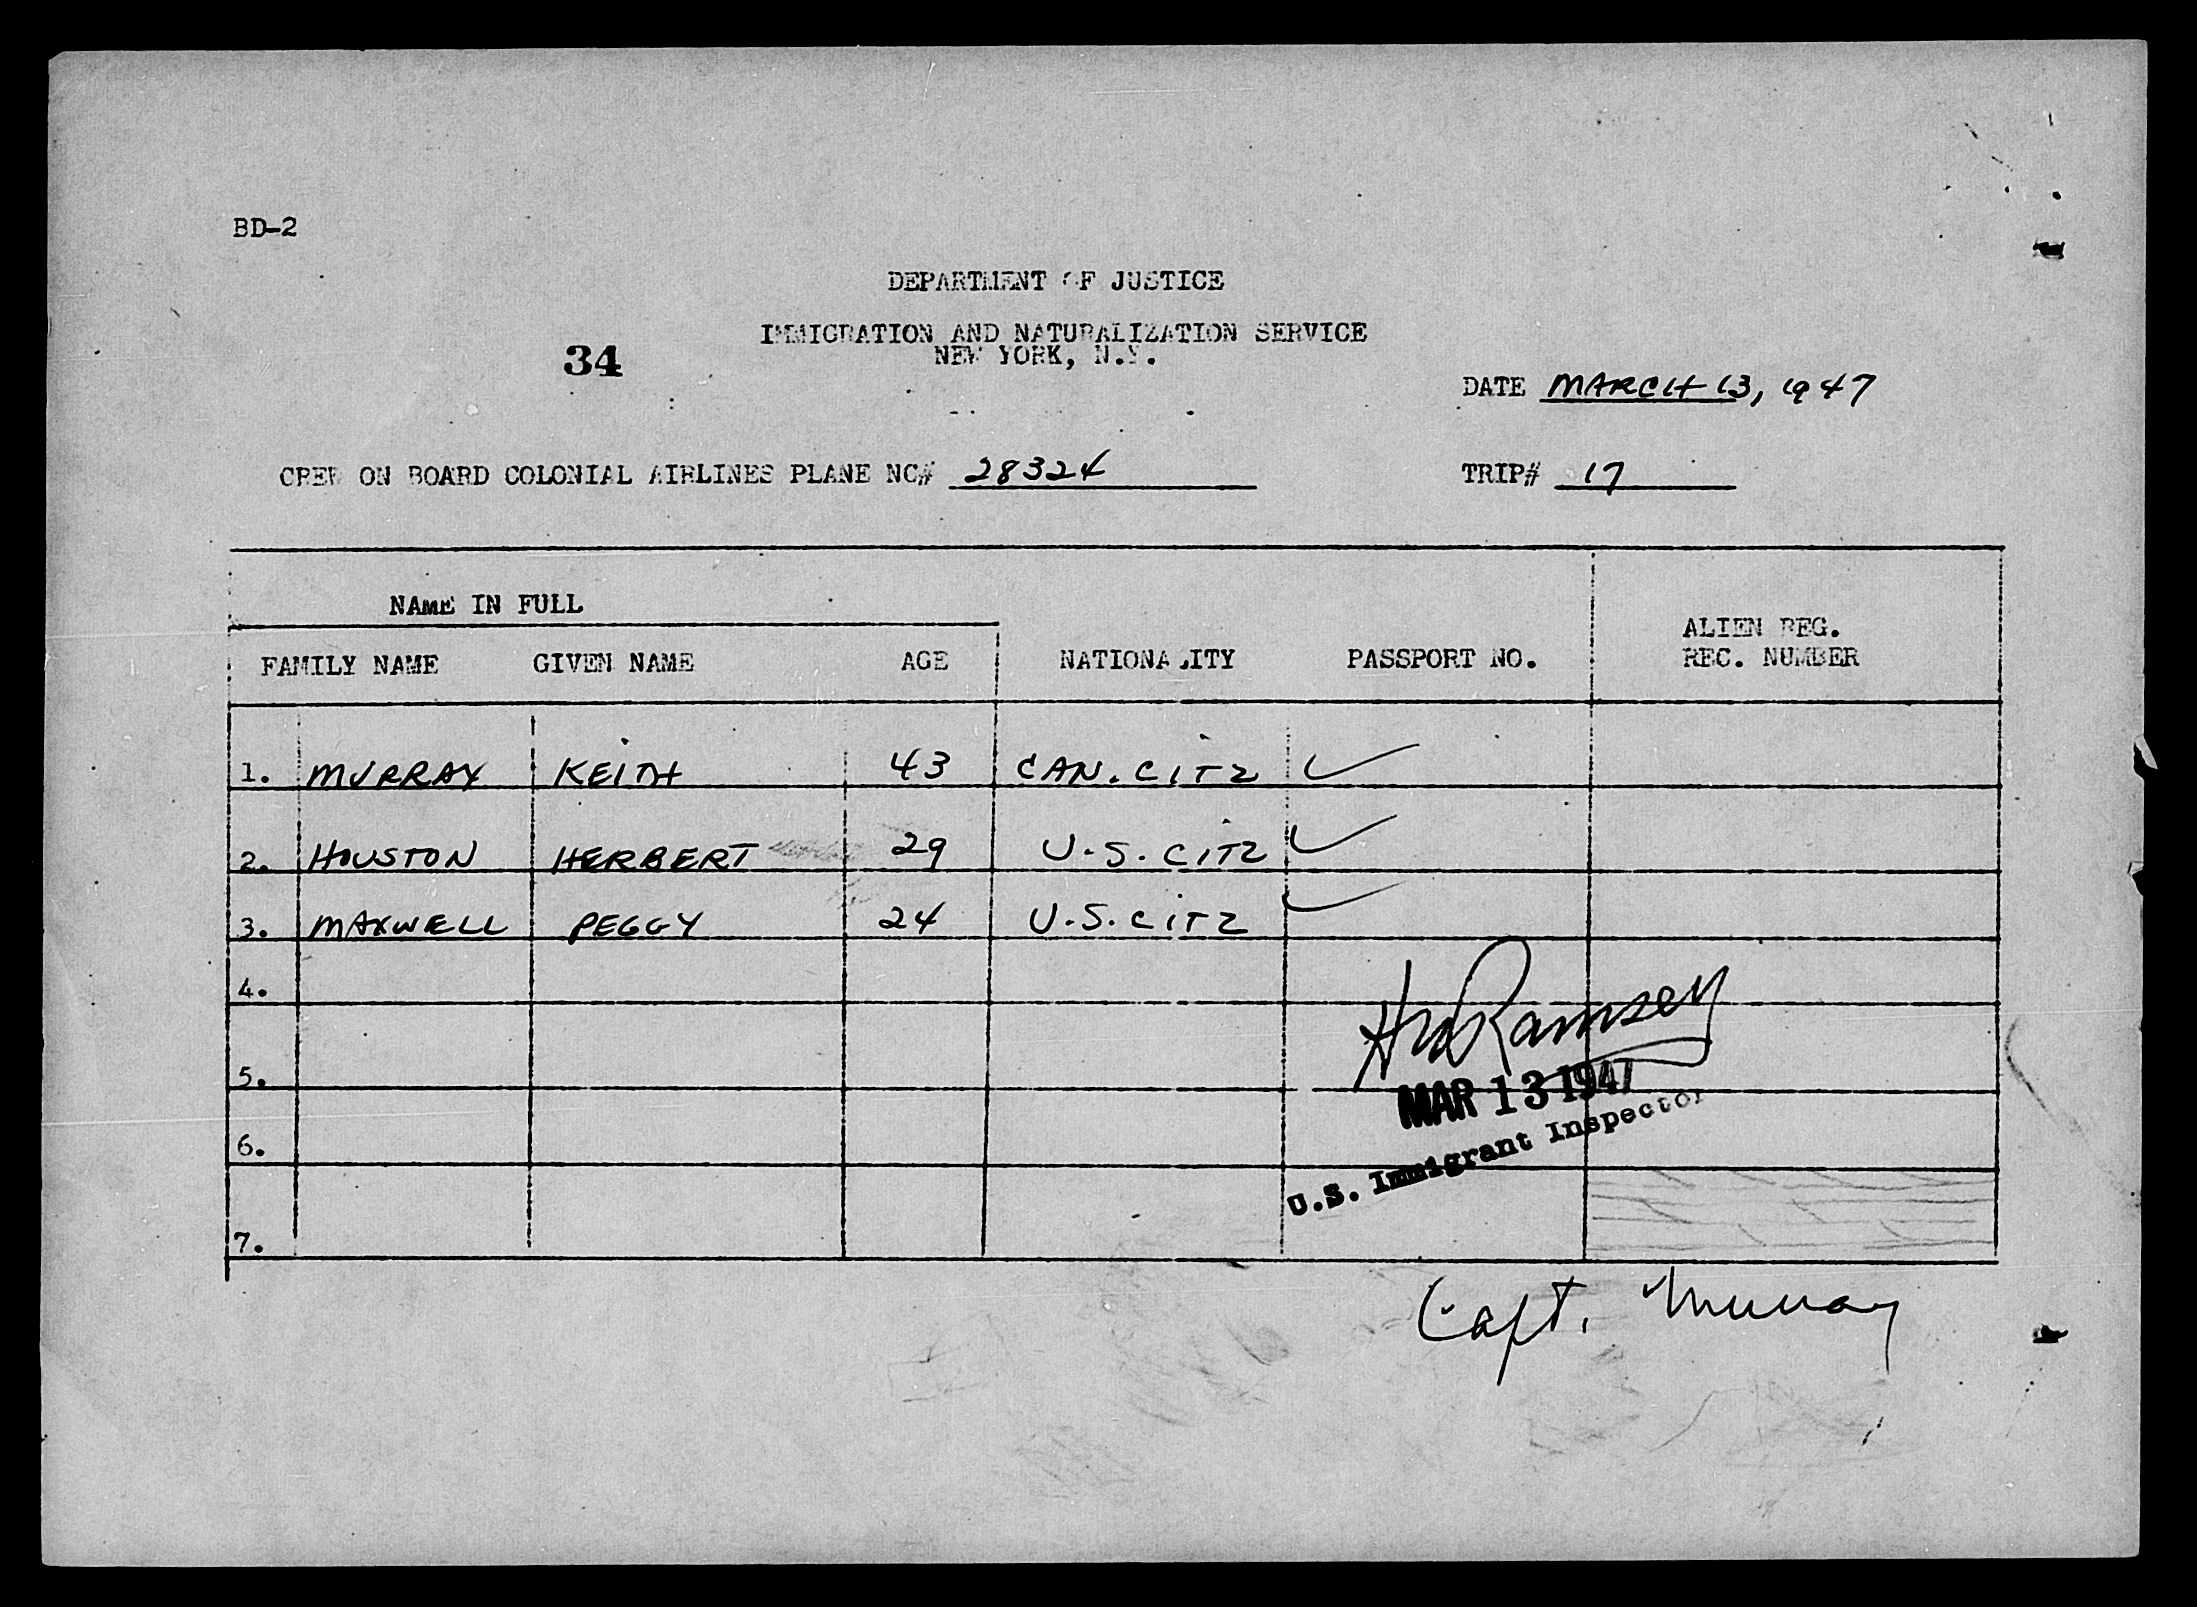 BD-2
DEPARTMENT OF JUSTICE
IMMIGRATION AND NATURALIZATION SERVICE
34
NEW YORK, N.Y.
DATE MARCH 13, 1947
CREW ON BOARD COLONIAL AIRLINES PLANE NC# 28324 TRIP# 17
NAME IN FULL
FAMILY NAME GIVEN NAME AGE NATIONALITY PASSPORT NO. ALIEN REG.
REC. NUMBER
1. MURRAY KEITH 43 CAN. CITZ ✓
2. HOUSTON HERBERT 29 U.S. CITZ ✓
3. MAXWELL PEGGY 24 U.S. CITZ ✓
4.
Ramsey
5.
MAR 13 1947
6.
U.S. Immigrant Inspector
7.
Capt. Murray